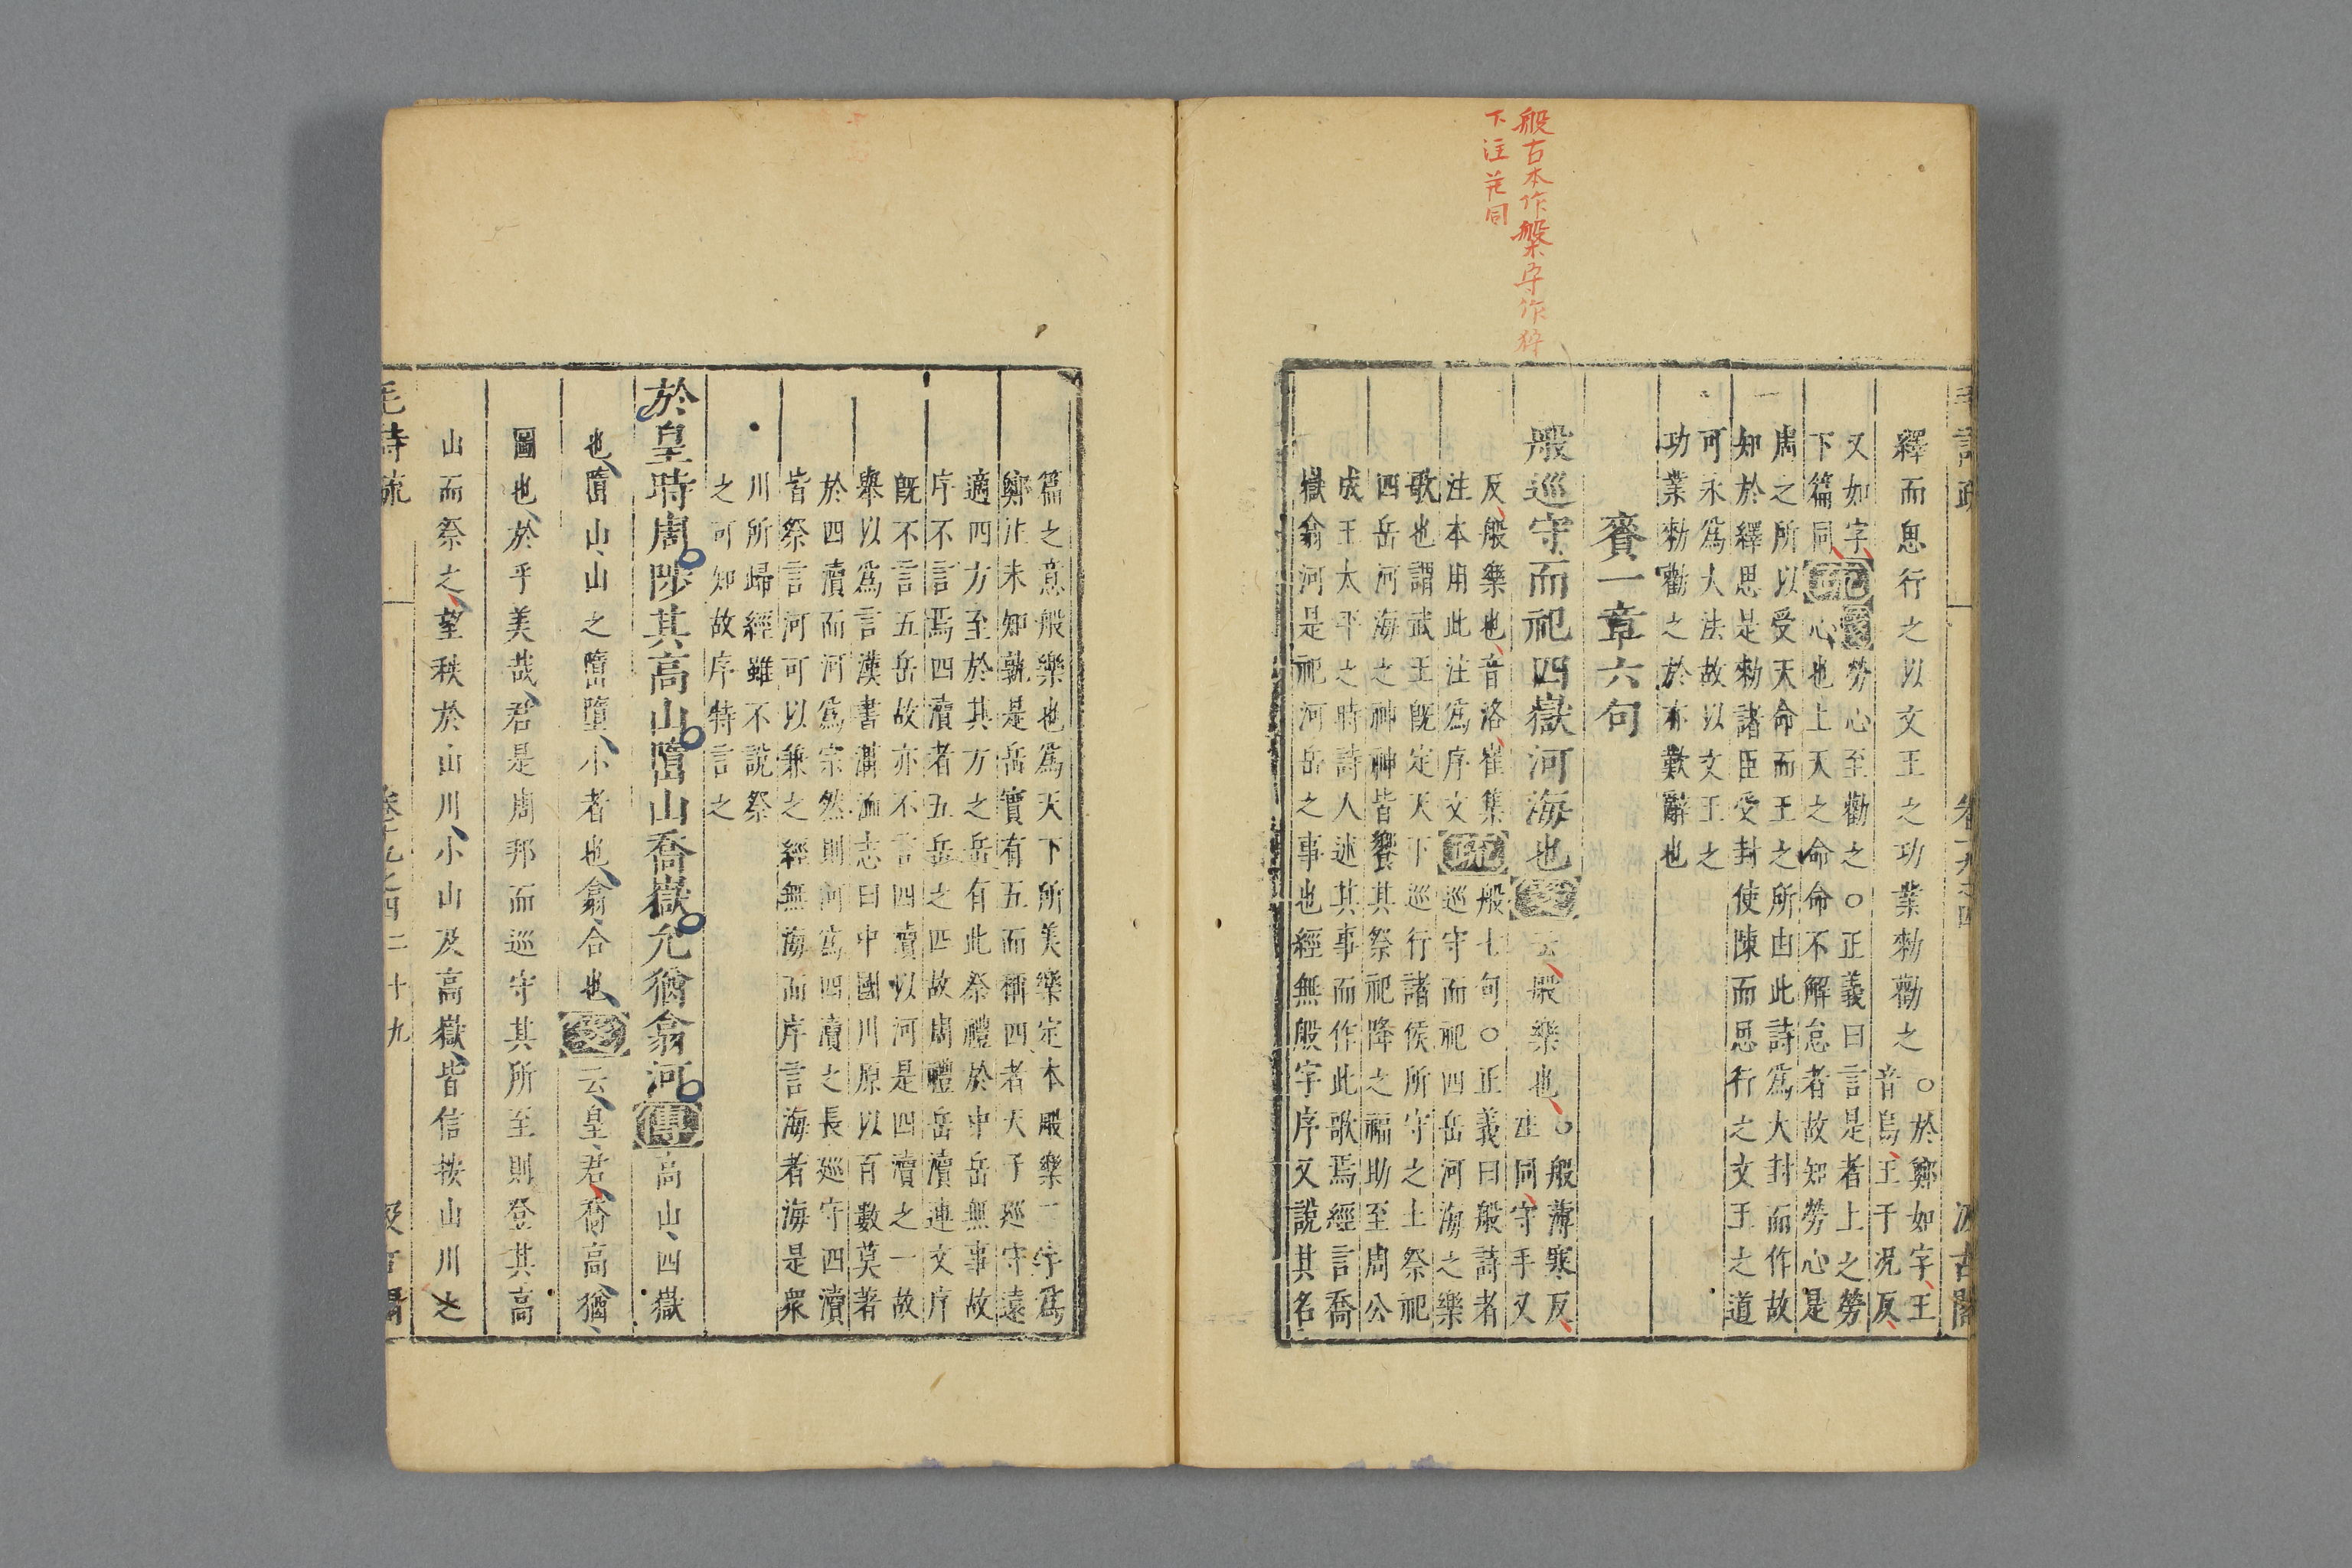 般古本作槃守作狩
下注並同
毛詩疏
卷十九之四
汲古閣
繹而思行之以文王之功業勑勸之○於鄭如字王
音烏王于況反
又如字
下篇同疏箋勞心至勸之○正義曰言是者上之勞
心也上天之命命不解怠者故知勞心是
周之所以受天命而王之所由此詩爲大封而作故
知於繹思是勑諸臣受封使陳而思行之文王之道
可永爲大法故以文王之
功業勑勸之於亦歎辭也
賚一章六句
般巡守而祀四嶽河海也箋云般樂也○般薄寒反
注同守手又
反般樂也音洛崔集
注本用此注爲序文疏般七句○正義曰般詩者
巡守而祀四岳河海之樂
歌也謂武王旣定天下巡行諸侯所守之土祭祀
四岳河海之神神皆饗其祭祀降之福助至周公
成王太平之時詩人述其事而作此歌焉經言喬
嶽翕河是祀河岳之事也經無般字序又說其名
篇之意般樂也爲天下所美樂定本般樂二字爲
鄭注未知孰是岳實有五而稱四者天子巡守遠
適四方至於其方之岳有此祭禮於中岳無事故
序不言焉四瀆者五岳之匹故周禮岳瀆連文序
旣不言五岳故亦不言四瀆以河是四瀆之一故
舉以爲言漢書溝洫志曰中國川原以百數莫著
於四瀆而河爲宗然則河爲四瀆之長巡守四瀆
皆祭言河可以兼之經無海而序言海者海是衆
川所歸經雖不說祭
之可知故序特言之
於皇時周陟其高山嶞山喬嶽允猶翕河傳高山四嶽
也嶞山山之嶞墮小者也翕合也箋云皇君喬高猶
圖也於乎美哉君是周邦而巡守其所至則登其高
山而祭之望秩於山川小山及高嶽皆信按山川之
毛詩疏
卷十九之四
二十九
汲古閣